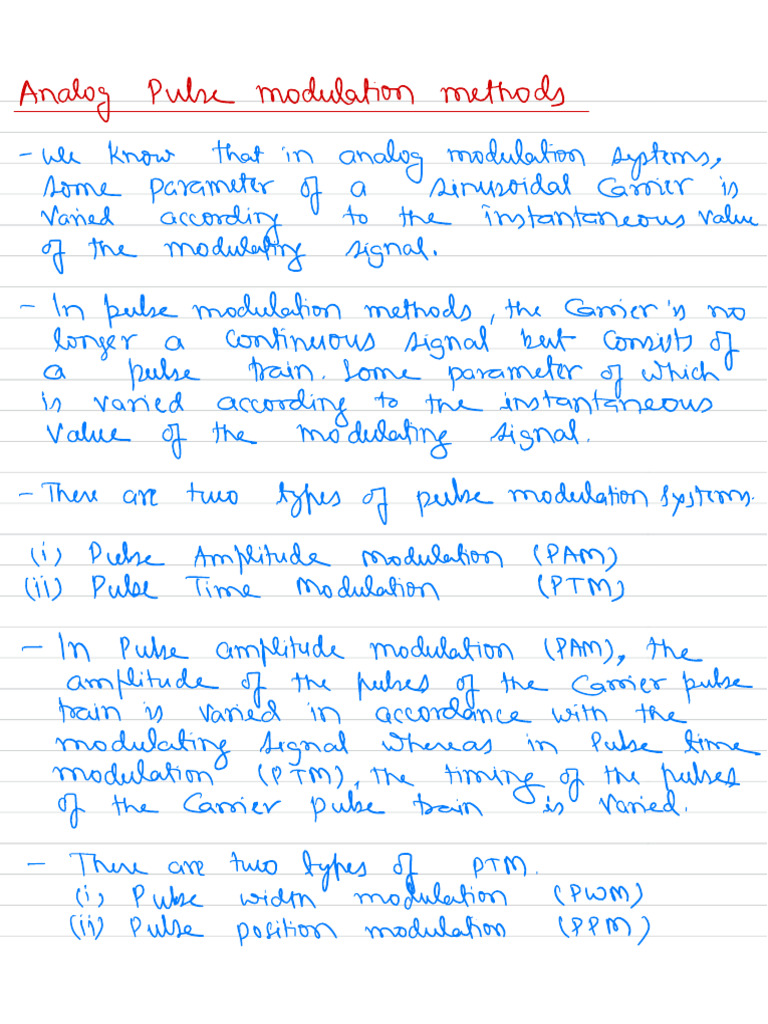 Analog Pulse modulation methods
- we know that in analog modulation systems,
some parameter of a sinusoidal Carrier is
varied according to the instantaneous value
of the modulating signal.
- In pulse modulation methods, the Carrier is no
longer a continuous signal but consists of
a pulse train. Some parameter of which
is varied according to the instantaneous
value of the modulating signal.
- There are two types of pulse modulation systems.
(i) Pulse Amplitude modulation (PAM)
(ii) Pulse Time Modulation (PTM)
- In Pulse amplitude modulation (PAM), the
amplitude of the pulses of the Carrier pulse
train is varied in accordance with the
modulating signal whereas in Pulse time
modulation (PTM), the timing of the pulses
of the Carrier pulse train is varied.
- There are two types of PTM.
(i) Pulse width modulation (PWM)
(ii) Pulse position modulation (PPM)